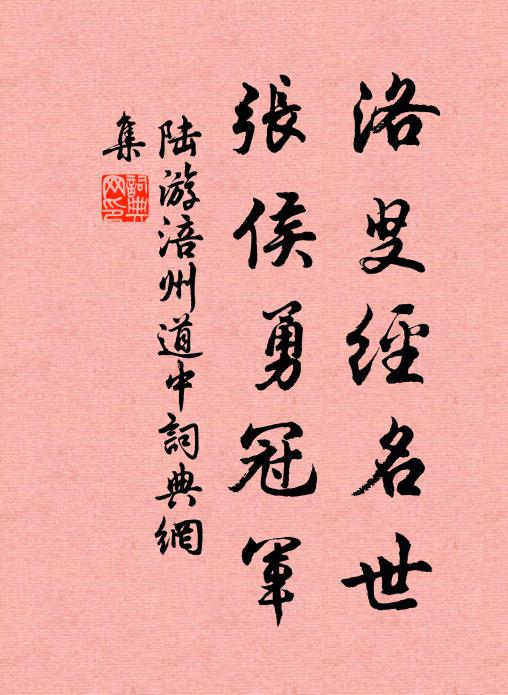 洛叟經名世
張侯勇冠軍
陸游涪州道中詞典網
集
詞典網印